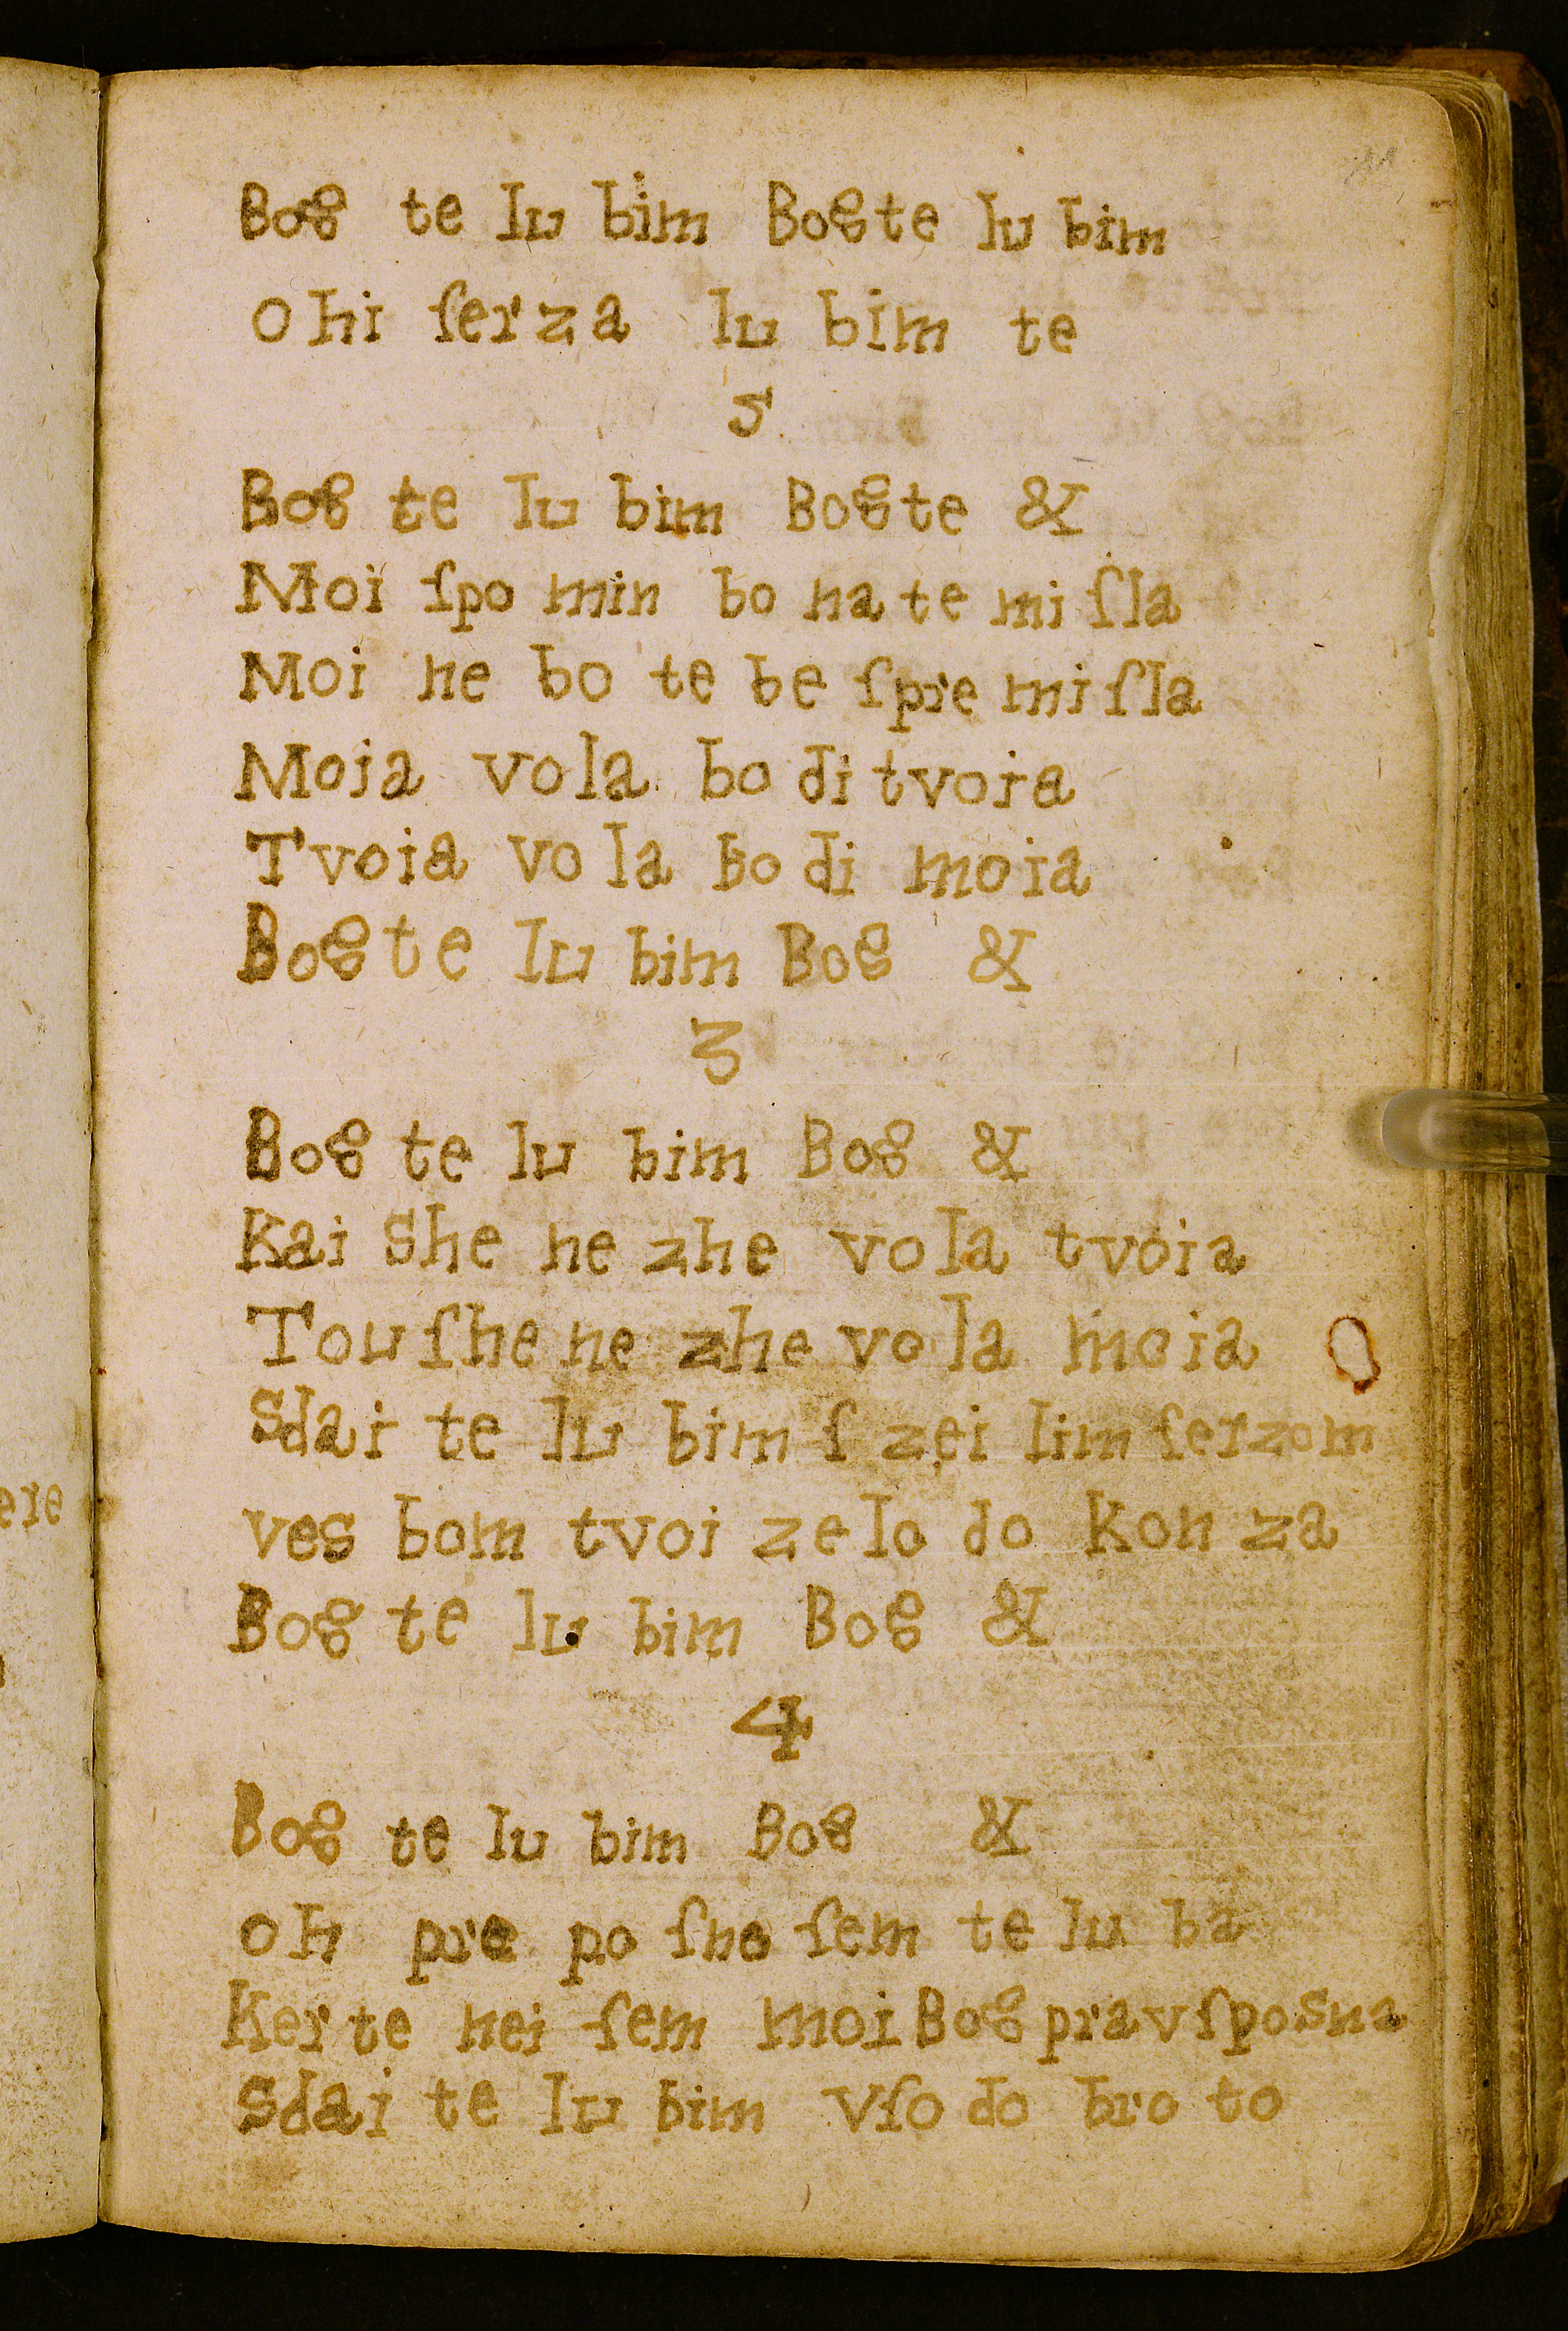 11
Bog te lu bim Bogte lu bim
Ohi ſerza lu bim te
5
Bog te lu bim Bogte &
Moi ſpo min bo na te mi ſla
Moi ne bo te be ſpre mi ſla
Moia vola bo di tvoia
Tvoia vo la bo di moia
Bogte lu bim Bog &
3
Bog te lu bim Bog &
Kai She ne zhe vola tvoia
Tou ſhe ne zhe vo la moia
Sdai te lu bim ſ zei lim ſerzom
ves bom tvoi zelo do kon za
Bog te lu bim Bog &
4
Bog te lu bim Bog &
Oh pre po ſno ſem te lu ba
Ker te nei ſem moi Bog prav ſposna
Sdai te lu bim vſo do bro to
ere